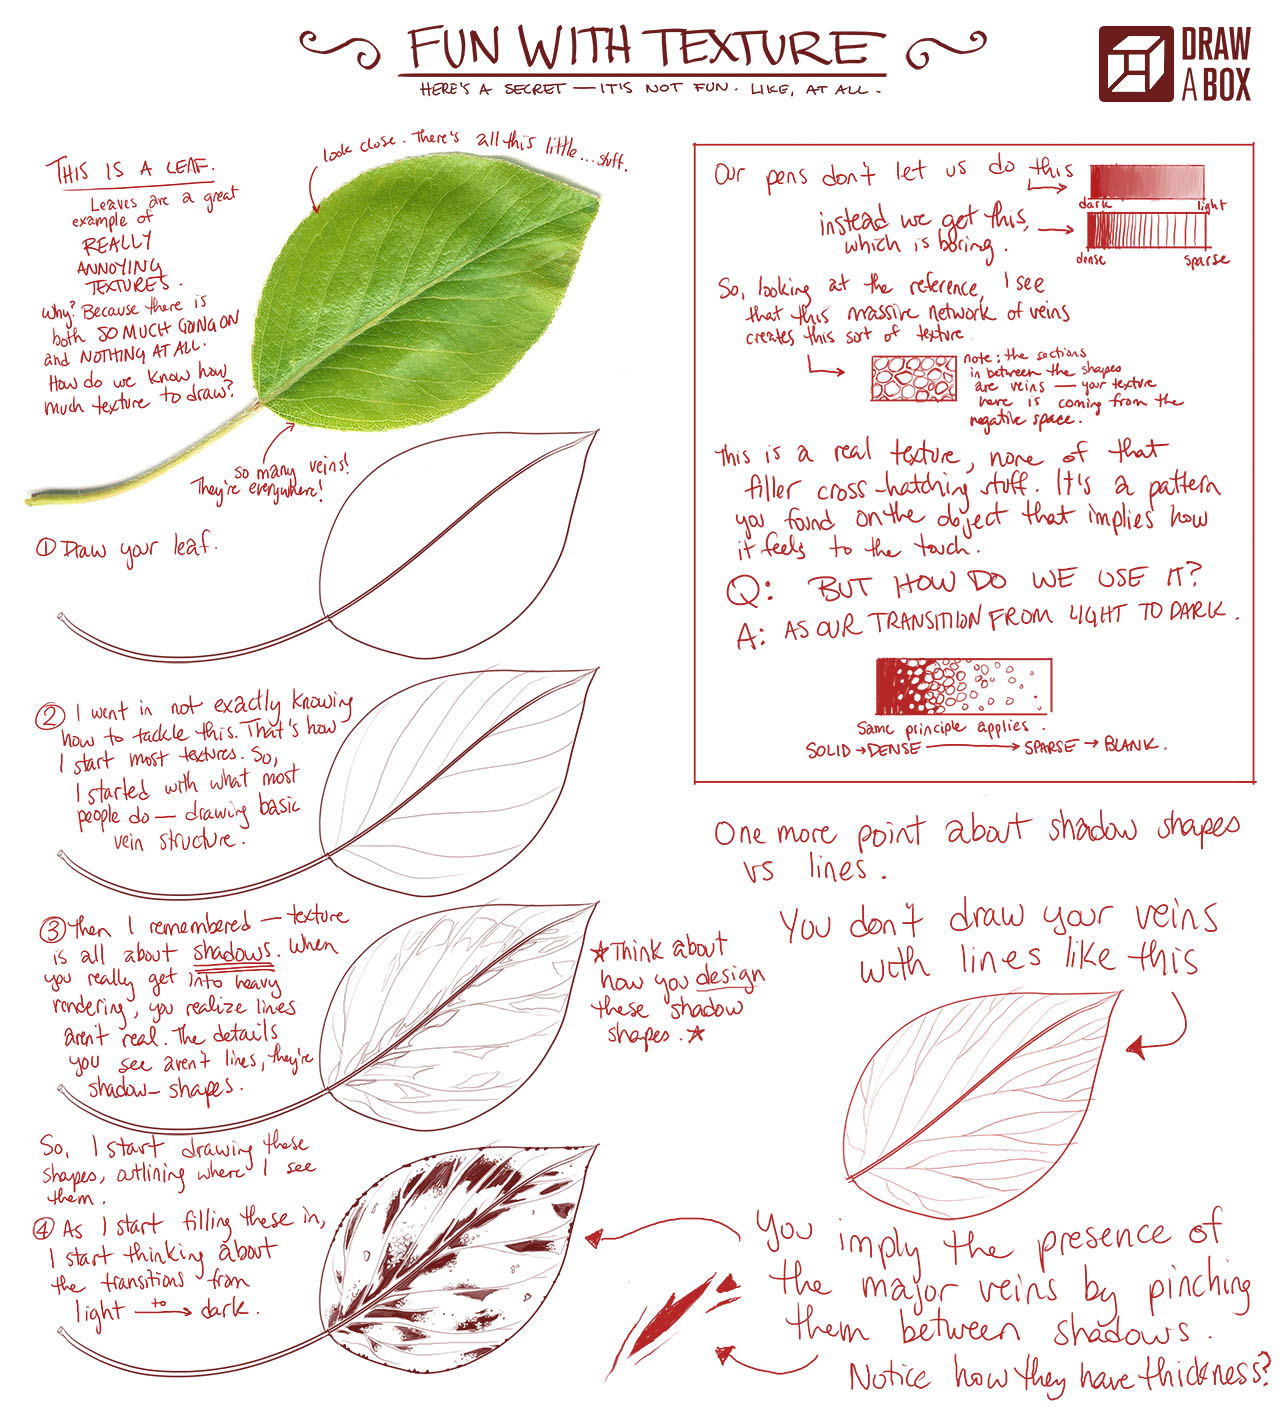 FUN WITH TEXTURE
HERE'S A SECRET — IT'S NOT FUN. LIKE, AT ALL.
DRAW
A BOX
THIS IS A LEAF.
Leaves are a great
example of
REALLY
ANNOYING
TEXTURES.
Why? Because there is
both SO MUCH GOING ON
and NOTHING AT ALL.
How do we know how
much texture to draw?
look close. There's all this little... stuff.
So many veins!
They're everywhere!
① Draw your leaf.
② I went in not exactly knowing
how to tackle this. That's how
I start most textures. So,
I started with what most
people do — drawing basic
vein structure.
③ Then I remembered — texture
is all about shadows. When
you really get into heavy
rendering, you realize lines
aren't real. The details
you see aren't lines, they're
shadow-shapes.
★ Think about
how you design
these shadow
shapes. ★
So, I start drawing these
shapes, outlining where I see
them.
④ As I start filling these in,
I start thinking about
the transitions from
light to → dark.
Our pens don't let us do this
dark light
instead we get this,
which is boring.
dense sparse
So, looking at the reference, I see
that this massive network of veins
creates this sort of texture
note: the sections
in between the shapes
are veins — your texture
here is coming from the
negative space.
This is a real texture, none of that
filler cross-hatching stuff. It's a pattern
you found on the object that implies how
it feels to the touch.
Q: BUT HOW DO WE USE IT?
A: AS OUR TRANSITION FROM LIGHT TO DARK.
Same principle applies.
SOLID → DENSE → SPARSE → BLANK.
One more point about shadow shapes
vs lines.
You don't draw your veins
with lines like this
You imply the presence of
the major veins by pinching
them between shadows.
Notice how they have thickness?